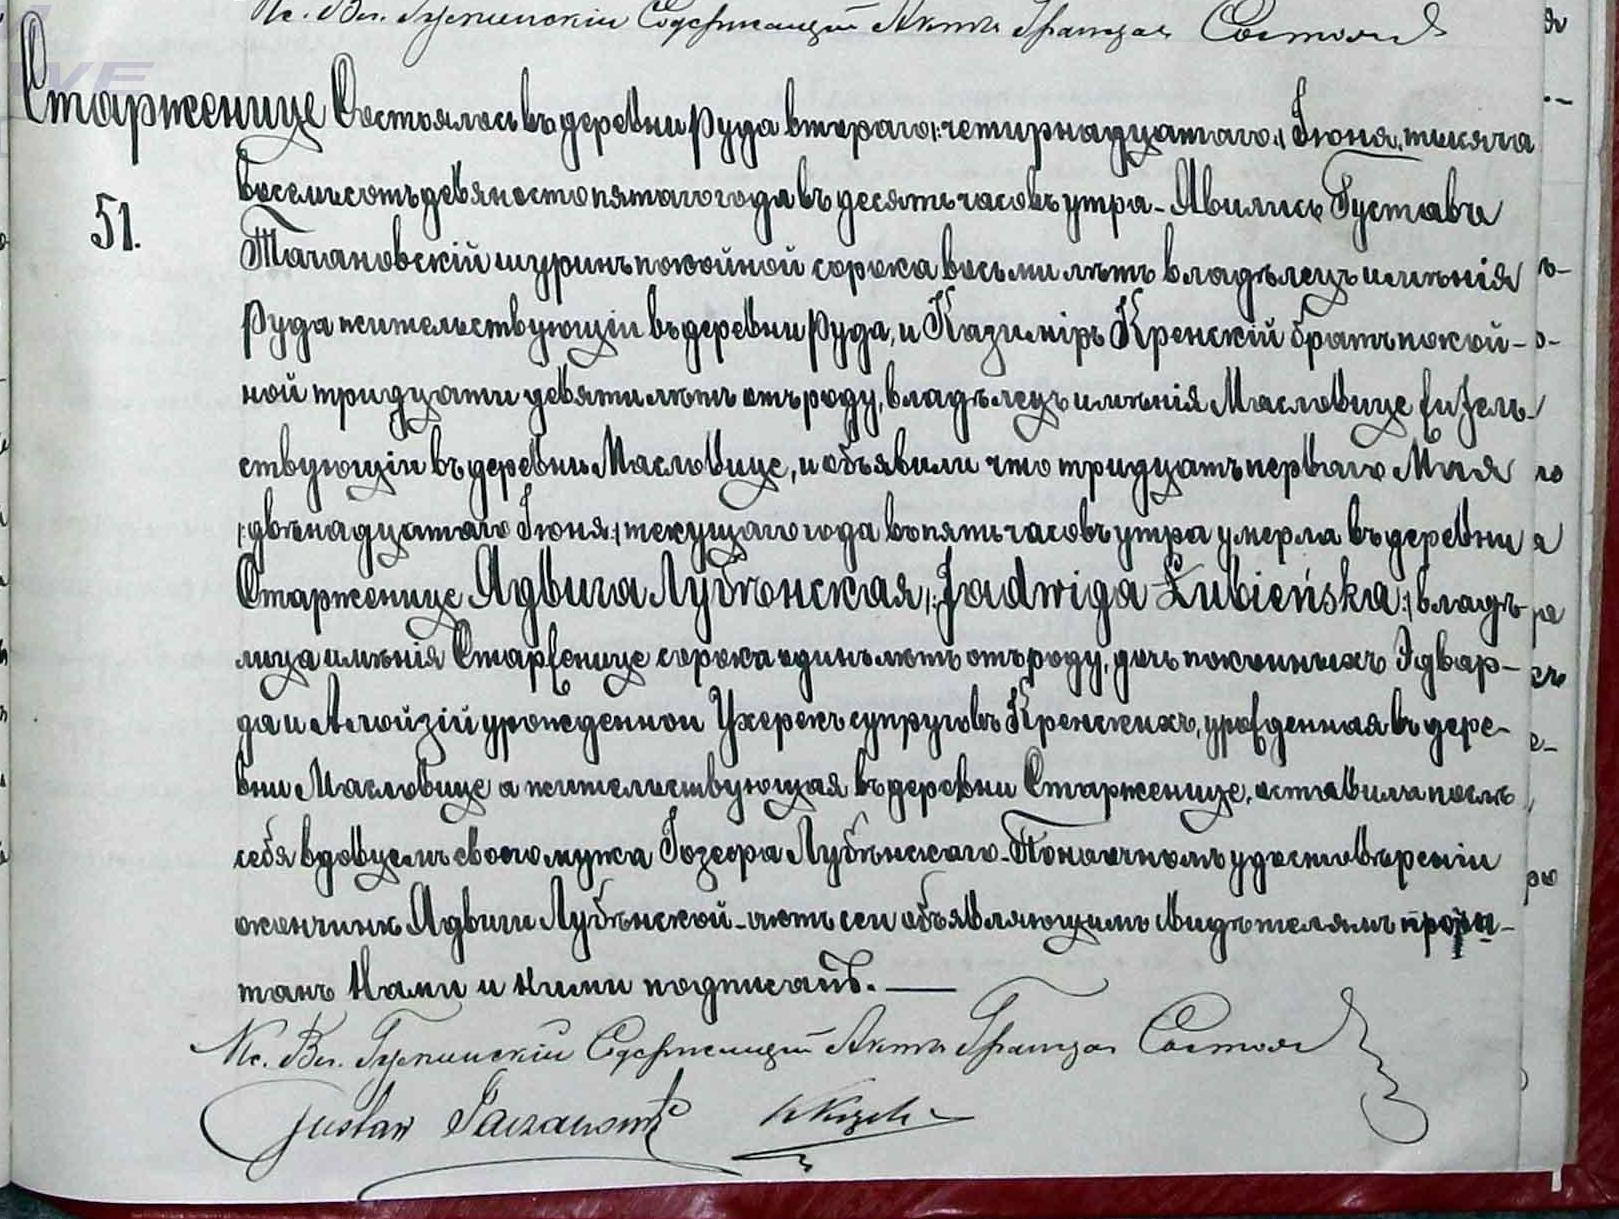 Кс. Вл. Гурнинскій Содержащій Акты Гражда. Состоя
Старженице Состоялось въ деревни Руда втораго |:четырнадцатаго:| Іюня, тысяча
51. восемьсотъ девяностопятаго года въ десять часовъ утра - Явились Густавъ
Тачановскій шуринъ покойной сорока восьми лѣтъ владѣлецъ имѣнія
Руда жительствующій въ деревни Руда, и Казиміръ Кренскій братъ покой-
ной тридцати девяти лѣтъ отъ роду, владѣлецъ имѣнія Масловице жител-
ствующій въ деревни Масловице, и объявили что тридцать перваго Мая
|:двѣнадцатаго Іюня:| текущаго года въ пять часовъ утра умерла въ деревни
Старженице Ядвига Лубѣнская |:Jadwiga Łubieńska:| владѣ-
лица имѣнія Старженице сорока одинъ лѣтъ отъ роду, дочь покойныхъ Эдвар-
да и Алойзій урожденной Ухерекъ супруговъ Кренскихъ, урожденная въ дере-
вни Масловице а жительствующая въ деревни Старженице, оставила послѣ
себя вдовцемъ своего мужа Іозефа Лубѣнскаго - По наочномъ удостовѣреніи
о кончинѣ Ядвиги Лубѣнской - актъ сей объявляющимъ свидѣтелямъ прочи-
танъ Нами и Ними подписанъ. —
Кс. Вл. Гурнинскій Содержащій Акты Гражда. Состоя
Gustaw Taczanowski